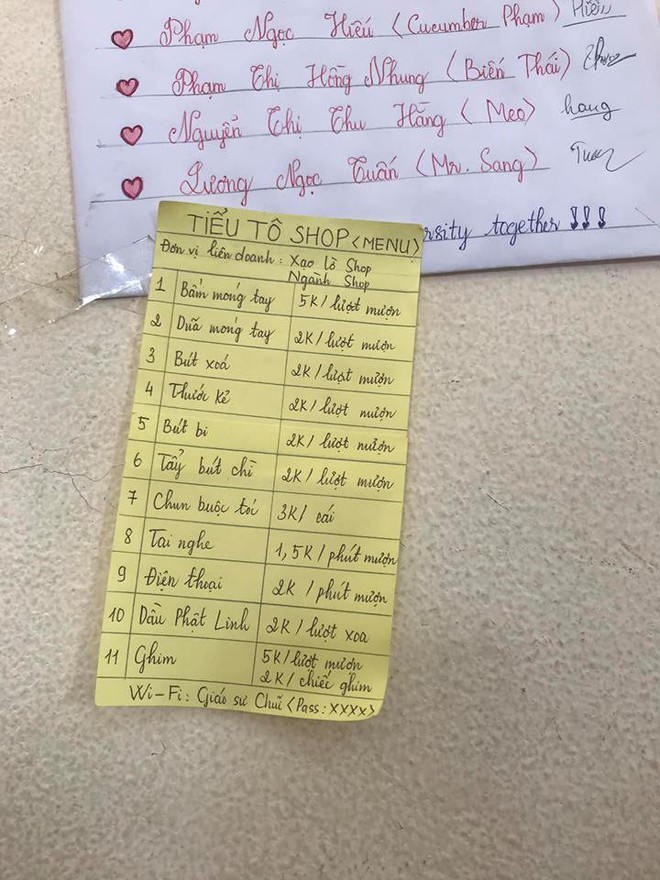 Phạm Ngọc Hiếu (Cucumber Phạm) Hiếu
Phạm Thị Hồng Nhung (Biến Thái)
Nguyễn Thị Thu Hằng (Meo) hang
Lương Ngọc Tuấn (Mr. Sang)
rsity together !!!
TIỂU TÔ SHOP <MENU>
Đơn vị liên doanh: Xạo Lô Shop
Ngành Shop
1 Bấm móng tay 5K/lượt mượn
2 Dũa móng tay 2K/lượt mượn
3 Bút xoá 2K/lượt mượn
4 Thước kẻ 2K/lượt mượn
5 Bút bi 2K/lượt mượn
6 Tẩy bút chì 2K/lượt mượn
7 Chun buộc tóc 3K/cái
8 Tai nghe 1,5K/phút mượn
9 Điện thoại 2K/phút mượn
10 Dầu Phật Linh 2K/lượt xoa
11 Ghim 5K/lượt mượn
2K/chiếc ghim
Wi-Fi: Giáo sư Chuĩ <Pass: XXXX>